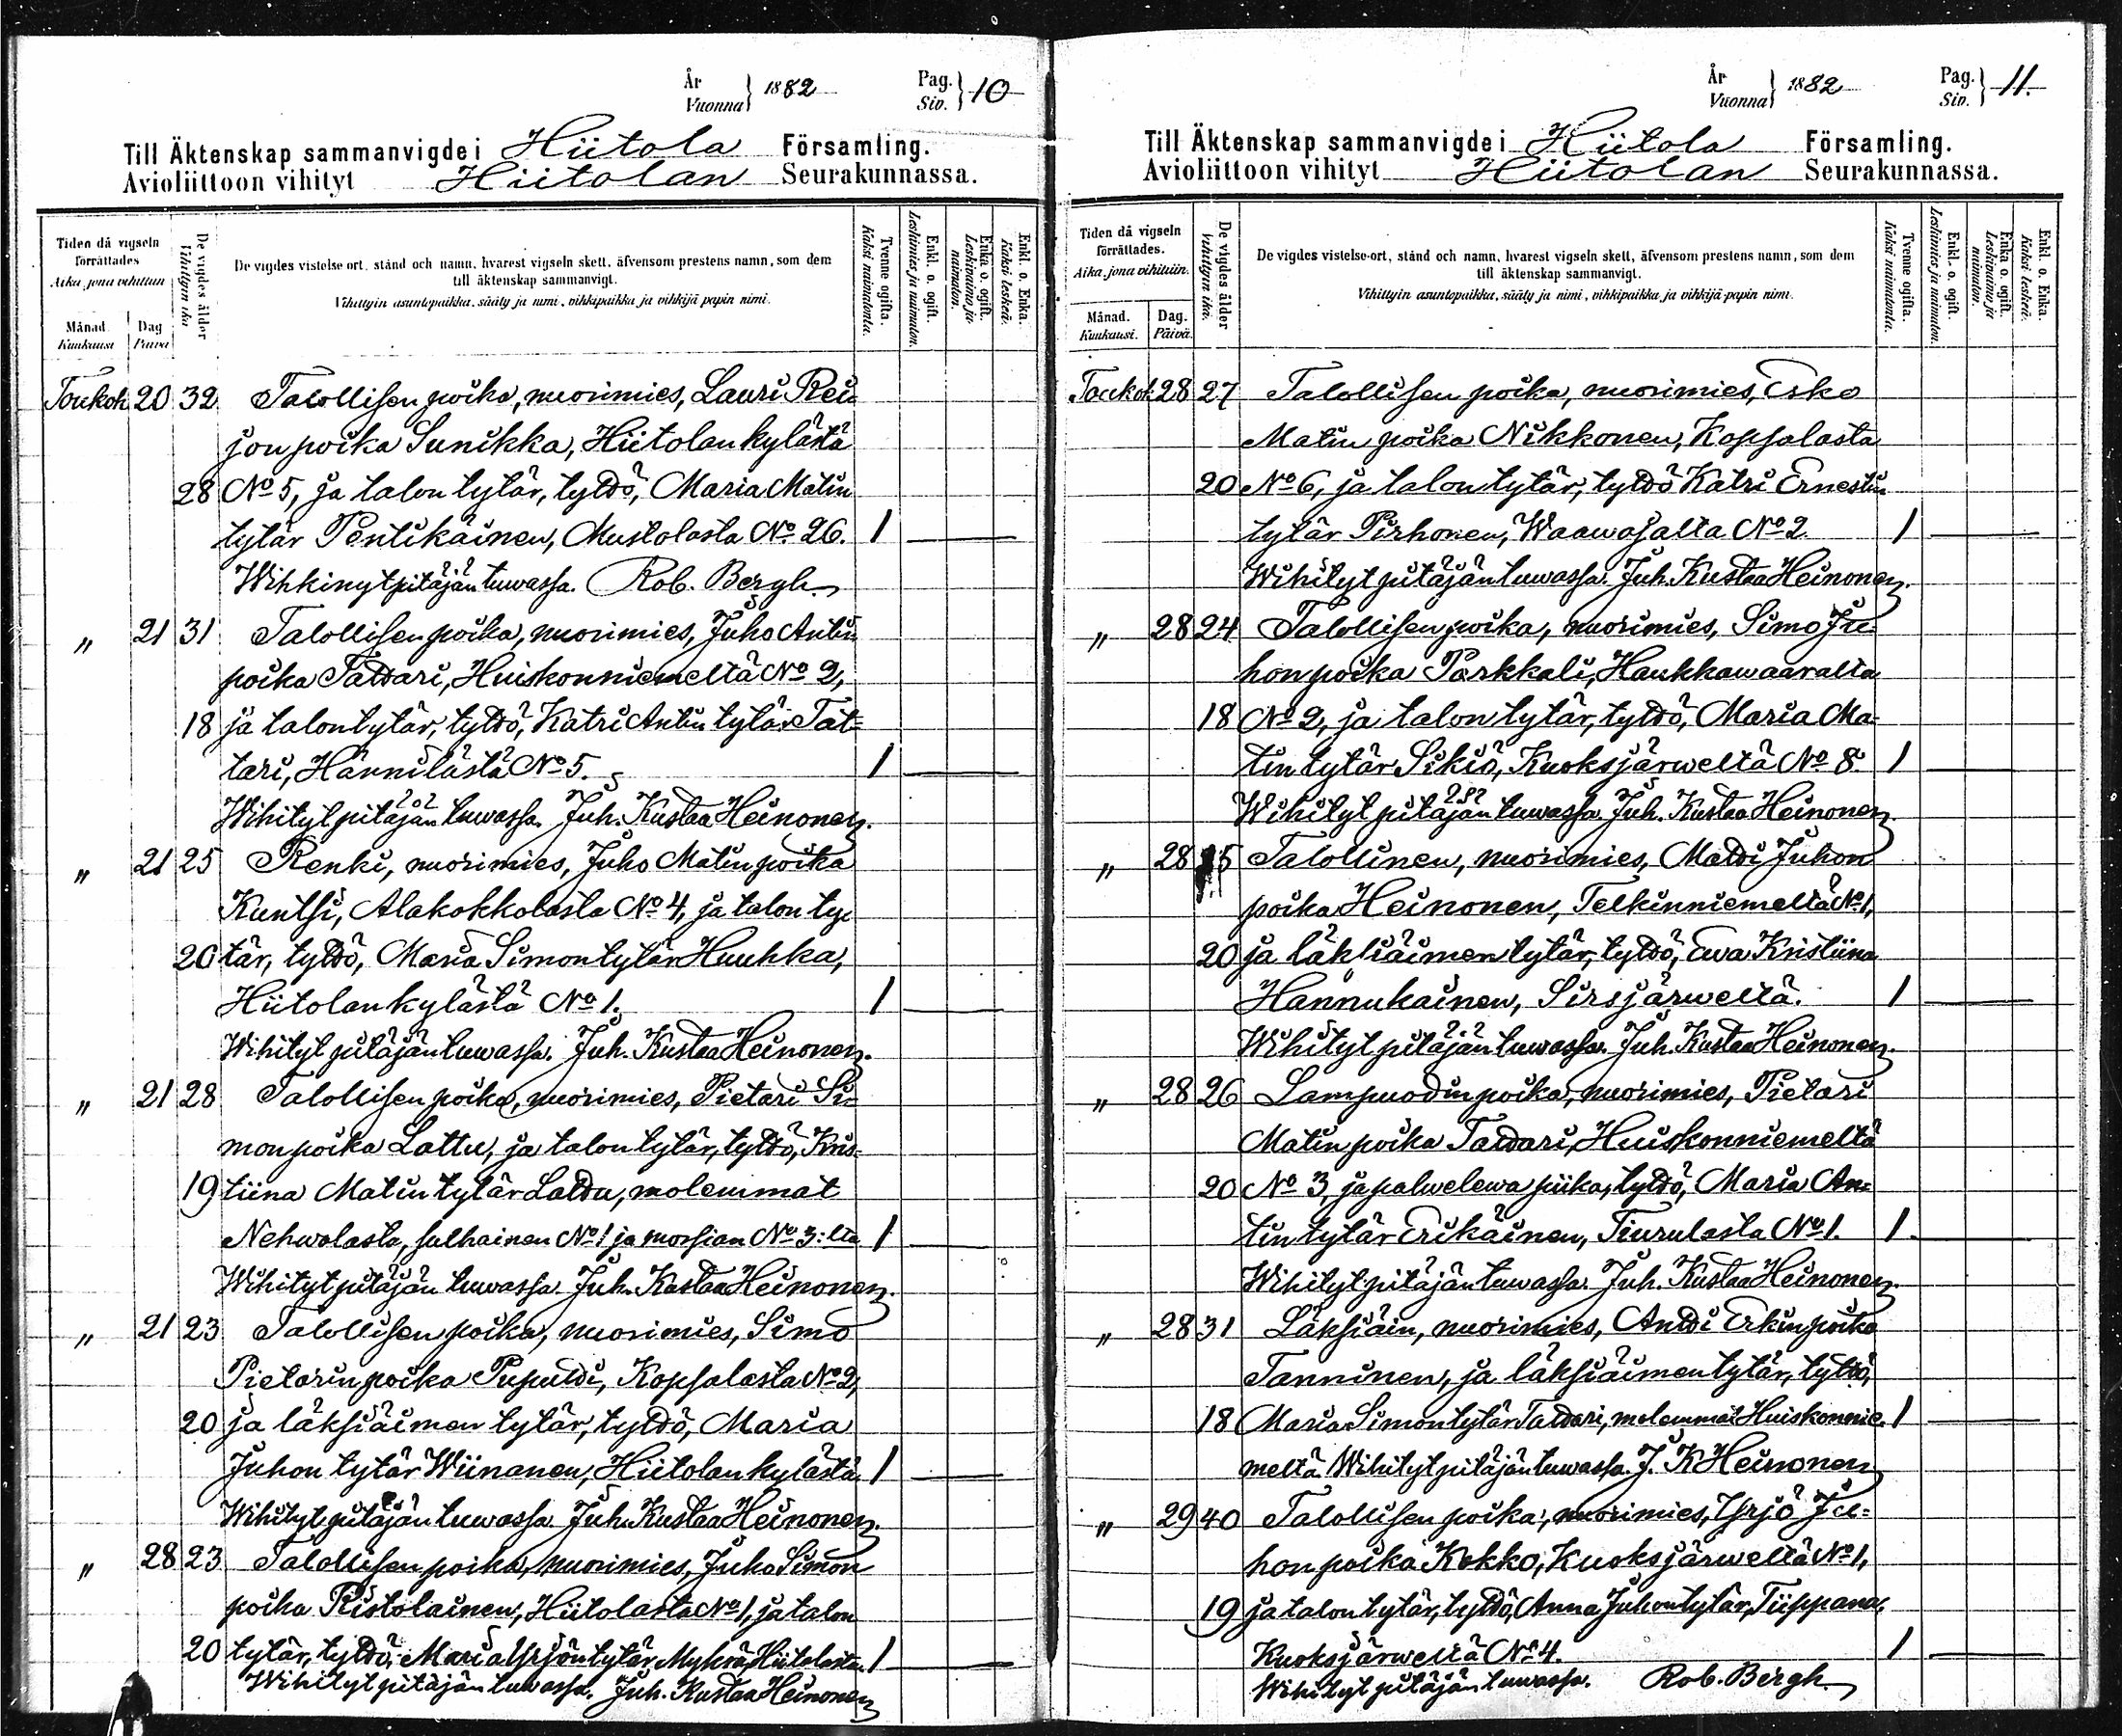 År
Vuonna } 1882 Pag.
Siv. } 10
Till Äktenskap sammanvigde i Hiitola Församling.
Avioliittoon vihityt Hiitolan Seurakunnassa.
Tiden då vigseln förrättades
Aika jona vihittiin
Månad. Kuukausi
Dag Päivä
De vigdes ålder
Vihittyin ikä
De vigdes vistelse ort, stånd och namn, hvarest vigseln skett, äfvensom prestens namn, som dem
till äktenskap sammanvigt.
Vihittyin asuntopaikka, sääty ja nimi, vihkipaikka ja vihkijä papin nimi.
Tvenne ogifta.
Kaksi naimatonta.
Enkl. o. ogift.
Leskimies ja naimaton.
Enka o. ogift.
Leskivaimo ja naimaton.
Enkl. o. Enka.
Kaksi leskeä.
Toukok. 20 32 Talollisen poika, nuorimies, Lauri Rei-
jon poika Sunikka, Hiitolan kylästä
28 No 5, ja talon tytär, tyttö, Maria Matin
tytär Pentikäinen, Mustolasta No 26. 1
Wihkinyt pitäjän tuwassa. Rob. Bergh.
„ 21 31 Talollisen poika, nuorimies, Juho Antin
poika Tattari, Huiskonniemeltä No 2,
18 ja talon tytär, tyttö, Katri Antin tytär Tat=
tari, Hännilästä No 5. 1
Wihityt pitäjän tuwassa. Juh. Kustaa Heinonen.
„ 21 25 Renki, nuorimies, Juho Matin poika
Kuntsi, Alakokkolasta No 4, ja talon ty-
20 tär, tyttö, Maria Simon tytär Huuhka,
Hiitolan kylästä No 1. 1
Wihityt pitäjän tuwassa. Juh. Kustaa Heinonen.
„ 21 28 Talollisen poika, nuorimies, Pietari Si-
mon poika Lattu, ja talon tytär, tyttö, Kris-
19 tiina Matin tytär Lattu, molemmat
Nehwolasta, sulhainen No 1 ja morsian No 3:lta 1
Wihityt pitäjän tuwassa. Juh. Kustaa Heinonen.
„ 21 23 Talollisen poika, nuorimies, Simo
Pietarin poika Puputti, Kopsalasta No 2,
20 ja läksiäimen tytär, tyttö, Maria
Juhon tytär Wiinanen, Hiitolan kylästä 1
Wihityt pitäjän tuwassa Juh. Kustaa Heinonen.
„ 28 23 Talollisen poika, nuorimies, Juho Simon
poika Ristolainen, Hiitolasta No 1, ja talon
20 tytär, tyttö, Maria Yrjön tytär Mykrä, Hiitolasta. 1
Wihityt pitäjän tuwassa. Juh. Kustaa Heinonen
År
Vuonna } 1882 Pag.
Siv. } 11.
Till Äktenskap sammanvigde i Hiitola Församling.
Avioliittoon vihityt Hiitolan Seurakunnassa.
Tiden då vigseln förrättades.
Aika, jona vihittiin.
Månad. Kuukausi.
Dag. Päivä.
De vigdes ålder
Vihittyin ikä.
De vigdes vistelse-ort, stånd och namn, hvarest vigseln skett, äfvensom prestens namn, som dem
till äktenskap sammanvigt.
Vihittyin asuntopaikka, sääty ja nimi, vihkipaikka ja vihkijä-papin nimi.
Tvenne ogifta.
Kaksi naimatonta.
Enkl. o. ogift.
Leskimies ja naimaton.
Enka o. ogift.
Leskivaimo ja naimaton.
Enkl. o. Enka.
Kaksi leskeä.
Toukok. 28 27 Talollisen poika, nuorimies, Esko
Matin poika Nikkonen, Kopsalasta
20 No 6, ja talon tytär, tyttö Katri Ernestin
tytär Pirhonen, Waawojalta No 2. 1
Wihityt pitäjän tuwassa. Juh. Kustaa Heinonen.
„ 28 24 Talollisen poika, nuorimies, Simo Ju-
hon poika Parkkali, Haukkawaaralta
18 No 2, ja talon tytär, tyttö, Maria Ma-
tin tytär Sikiö, Kuoksjärweltä No 8. 1
Wihityt pitäjän tuwassa Juh. Kustaa Heinonen.
„ 28 25 Talollinen, nuorimies, Matti Juhon
poika Heinonen, Telkinniemeltä No 1,
20 ja läksiäimen tytär, tyttö, Ewa Kristiina
Hannukainen, Sirsjärweltä. 1
Wihityt pitäjän tuwassa. Juh. Kustaa Heinonen.
„ 28 26 Lampuodin poika, nuorimies, Pietari
Matin poika Tattari, Huiskonniemeltä
20 No 3, ja palwelewa piika, tyttö, Maria An=
tin tytär Erikäinen, Tiurulasta No 1. 1.
Wihityt pitäjän tuwassa. Juh. Kustaa Heinonen.
„ 28 31 Läksiäin, nuorimies, Antti Erkin poika
Tanninen, ja läksiäimen tytär, tyttö,
18 Maria Simon tytär Tattari, molemmat Huiskonnie- 1
meltä Wihityt pitäjän tuwassa. J. K Heinonen
„ 29 40 Talollisen poika, nuorimies, Yrjö Ju=
hon poika Kokko, Kuoksjärweltä No 1,
19 ja talon tytär, tyttö, Anna Juhon tytär, Tiippana,
Kuoksjärweltä No 4. 1
Wihityt pitäjän tuwassa. Rob. Bergh.